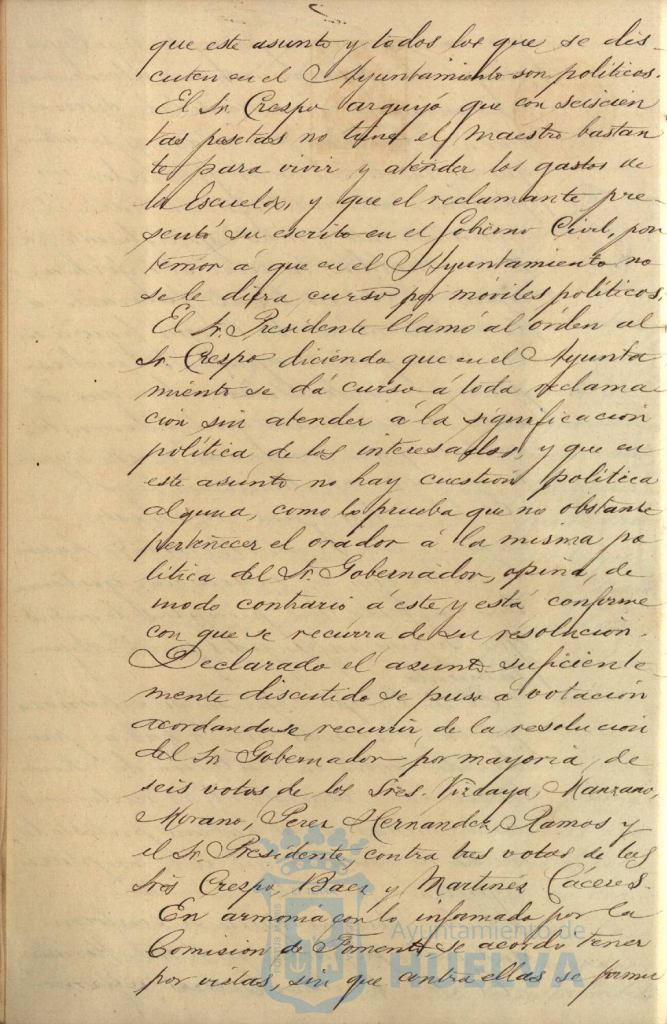 que este asunto y todos los que se dis-
cuten en el Ayuntamiento son políticos.
El Sr. Crespo arguyó que con seiscien
tas pesetas no tiene el Maestro bastan
te para vivir y atender los gastos de
la Escuela, y que el reclamante pre-
sentó su escrito en el Gobierno Civil, por
temor á que en el Ayuntamiento no
se le diera curso por móviles políticos.
El Sr. Presidente llamó al órden al
Sr. Crespo diciendo que en el Ayunta
miento se dá curso á toda reclama
cion sin atender á la significacion
política de los interesados, y que en
este asunto no hay cuestion política
alguna, como lo prueba que no obstante
pertenecer el orador á la misma po
lítica del Sr. Gobernador, opina, de
modo contrario á este y está conforme
con que se recurra de su resolucion.
Declarado el asunto suficiente
mente discutido se puso á votación
acordandose recurrir de la resolucion
del Sr. Gobernador por mayoria, de
seis votos de los Sres. Vizcaya, Manzano,
Morano, Perez Hernandez, Ramos y
el Sr. Presidente, contra tres votos de los
Sres Crespo, Baez y Martinez Cáceres.
En armonia con lo informado por la
Comision de Fomento se acordó tener
por vistas, sin que contra ellas se formu
Ayuntamiento de
HUELVA